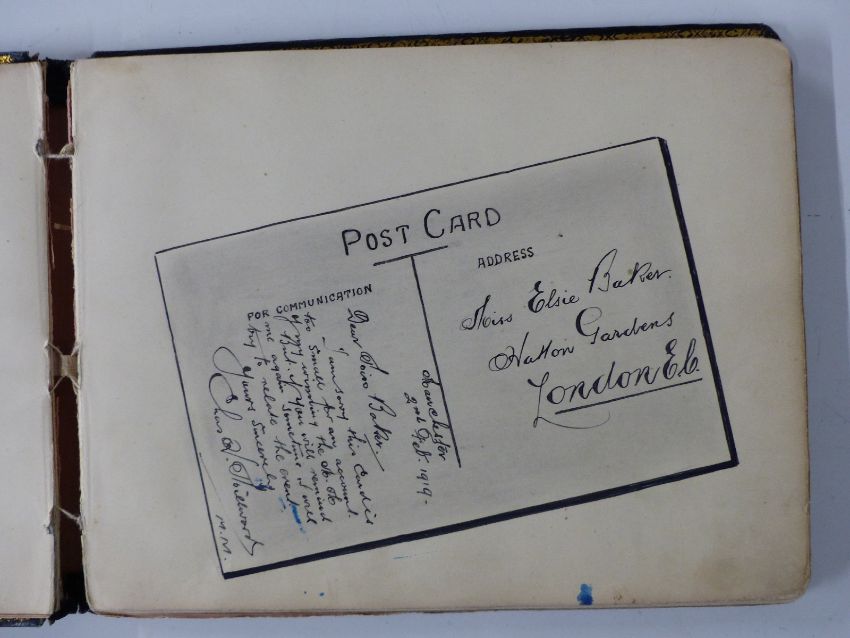 POST CARD
FOR COMMUNICATION
Manchester
2nd Feb. 1919-
Dear Miss Baker.
I am sorry this card is
too small for any account.
of my winning the M.M.
But. if you will remind
me again sometime I will
try to relate the event
Yours Sincerely
Chas
M.M.
ADDRESS
Miss Elsie Baker.
Hatton Gardens
London E.C.